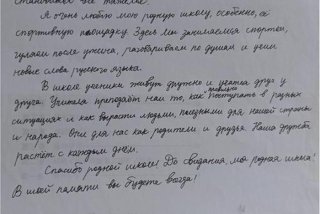 становится всё тяжелее.
Я очень люблю мою родную школу, особенно, её
спортивную площадку. Здесь мы занимались спортом,
гуляли после ужина, разговаривали по душам и учили
новые слова русского языка.
В школе ученики живут дружно и учатся друг у
друга. Учителя преподаёт нам то, как правильно поступать в разных
ситуациях и как вырасти людьми, полезными для нашей страны
и народа. Они для нас как родители и друзья. Наша дружба
растёт с каждым днём.
Спасибо родной школе! До свидания, моя родная школа!
В моей памяти вы будете всегда!